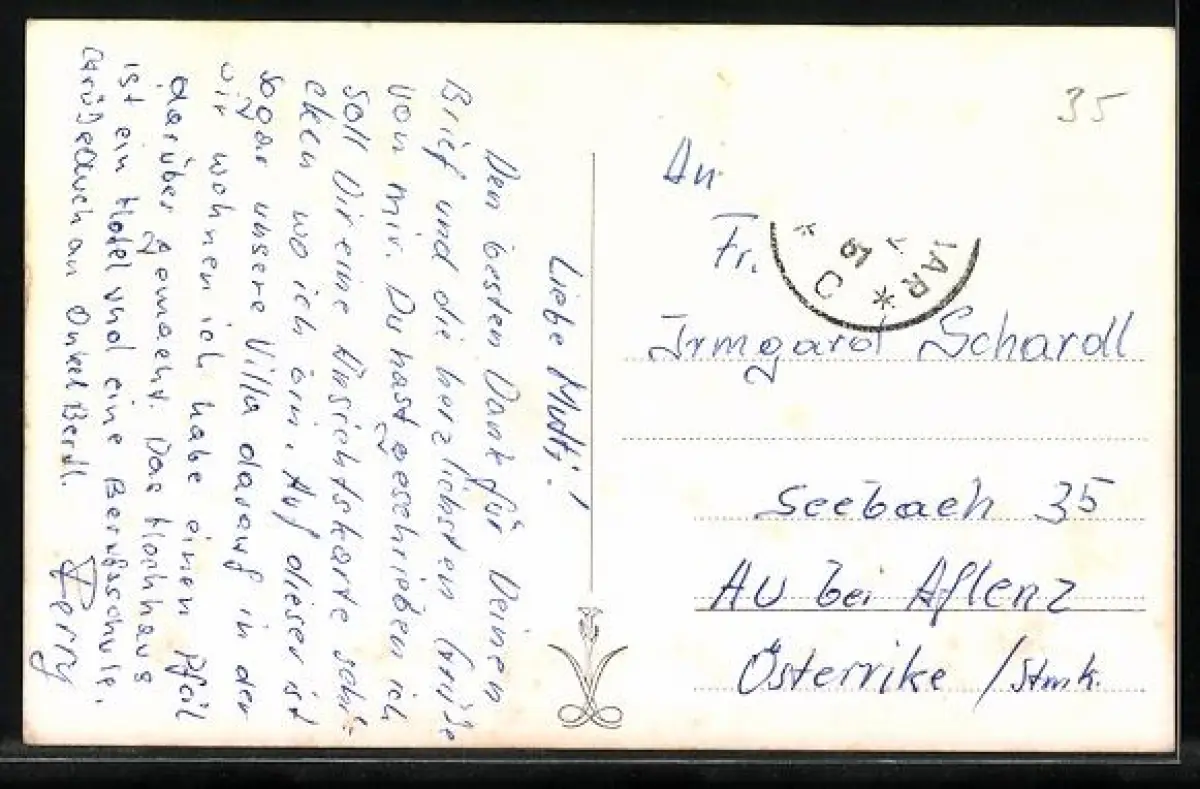 Liebe Mutti!
Den besten Dank für Deinen
Brief und die herzlichsten Grüße
von mir. Du hast geschrieben ich
soll Dir eine Ansichtskarte schi-
cken wo ich bin. Auf dieser ist
sogar unsere Villa darauf in der
wir wohnen ich habe einen Pfeil
darüber gemacht. Das Hochhaus
ist ein Hotel und eine Berufsschule.
Grüße auch an Onkel Berdl.
Ferry
35
An
Fr.
Irmgard Schardl
Seebach 35
AU bei Aflenz
Österrike /Stmk.